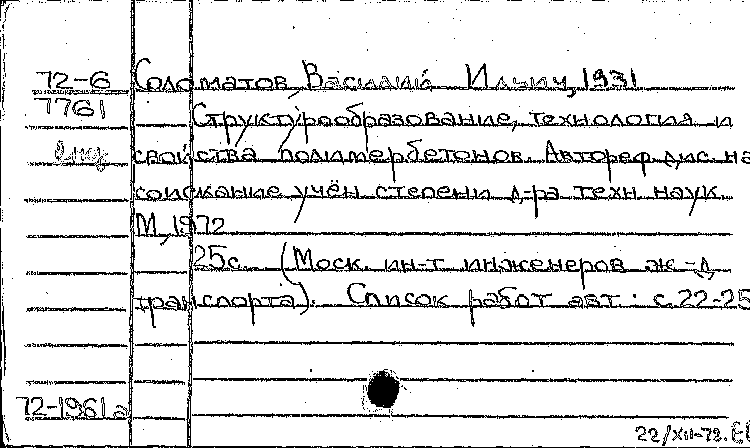 72-6 Соломатов, Василий Ильич, 1931
7761 Структурообразование, технология и
свойства полимербетонов. Автореф. дис. на
соискание учён. степени д-ра техн. наук.
М., 1972
25с. (Моск. ин-т инженеров ж.-д.
транспорта). Список работ авт.: с. 22-25
72-1961а
22/XII-72.